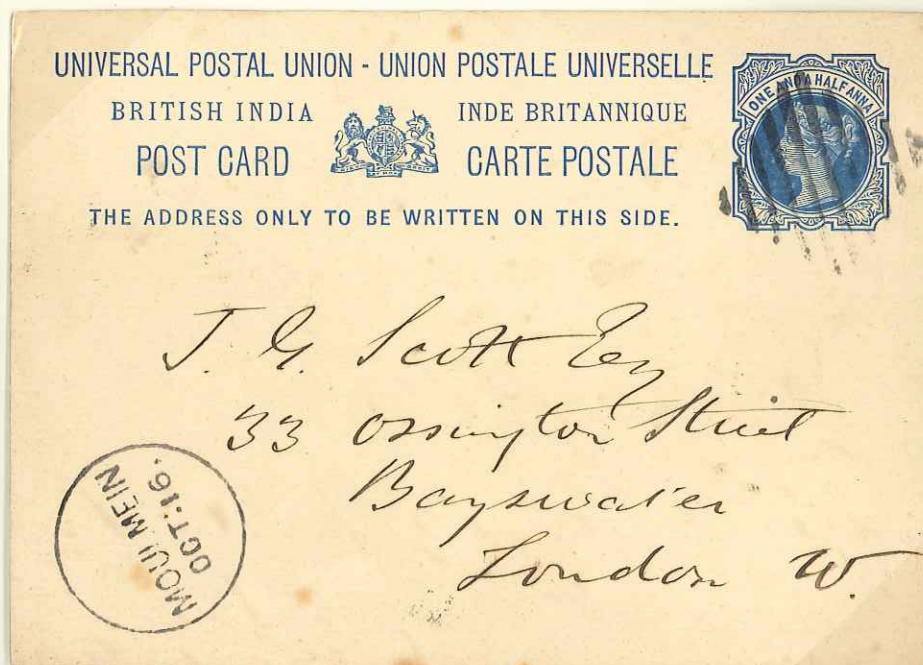 UNIVERSAL POSTAL UNION - UNION POSTALE UNIVERSELLE
BRITISH INDIA INDE BRITANNIQUE
POST CARD CARTE POSTALE
THE ADDRESS ONLY TO BE WRITTEN ON THIS SIDE.
ONE AND A HALF ANNA
J. G. Scott Esq
33 Ossington Street
Bayswater
London W.
MOULMEIN
OCT:16.